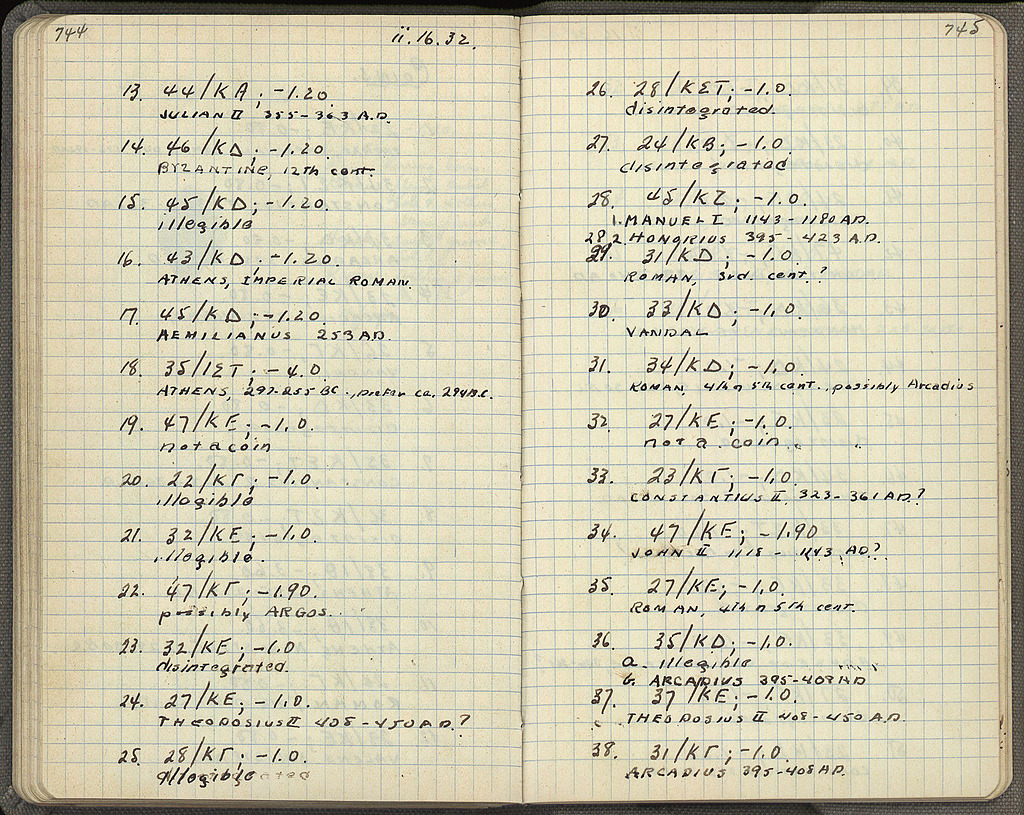 744
ii.16.32.
13. 44/ΚΑ; -1.20.
JULIAN II 355-363 A.D.
14. 46/ΚΔ; -1.20.
BYZANTINE, 12th cent.
15. 45/ΚΔ; -1.20.
illegible
16. 43/ΚΔ; -1.20.
ATHENS, IMPERIAL ROMAN.
17. 45/ΚΔ; -1.20.
AEMILIANUS 253 AD.
18. 35/ΙΣΤ; -4.0.
ATHENS, 297-255 BC., prefer ca. 294 B.C.
19. 47/ΚΕ; -1.0.
not a coin
20. 22/ΚΓ; -1.0.
illegible
21. 32/ΚΕ; -1.0.
illegible.
22. 47/ΚΓ; -1.90.
possibly ARGOS.
23. 32/ΚΕ; -1.0
disintegrated.
24. 27/ΚΕ; -1.0.
THEODOSIUS II 408-450 A.D.?
25. 28/ΚΓ; -1.0.
illegible
745
26. 28/ΚΣΤ; -1.0.
disintegrated.
27. 24/ΚΒ; -1.0.
disintegrated
28. 45/ΚΖ; -1.0.
1. MANUEL I 1143-1180 AD.
28,2. HONORIUS 395-423 A.D.
29. 31/ΚΔ; -1.0.
ROMAN, 3rd. cent.?
30. 33/ΚΔ; -1.0.
VANDAL
31. 34/ΚΔ; -1.0.
ROMAN, 4th n 5th cent., possibly Arcadius
32. 27/ΚΕ; -1.0.
not a coin.
33. 23/ΚΓ; -1.0.
CONSTANTIUS II 323-361 AD.?
34. 47/ΚΕ; -1.90
JOHN II 1118-1143 AD.?
35. 27/ΚΕ; -1.0.
ROMAN, 4th n 5th cent.
36. 35/ΚΔ; -1.0.
a. illegible
b. ARCADIUS 395-408 AD
37. 37/ΚΕ; -1.0.
THEODOSIUS II 408-450 A.D.
38. 31/ΚΓ; -1.0.
ARCADIUS 395-408 AD.